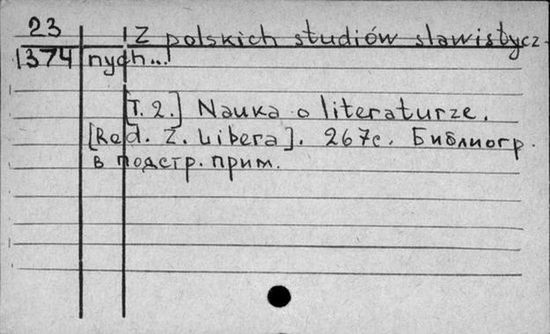 23
1374
Z polskich studiów slawistycz-
nych...
[T. 2.] Nauka o literaturze.
[Red. Z. Libera]. 267с. Библиогр.
в подстр. прим.